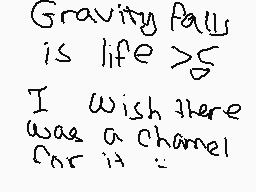 Gravity falls
is life >:(
I wish there
was a channel
for it :